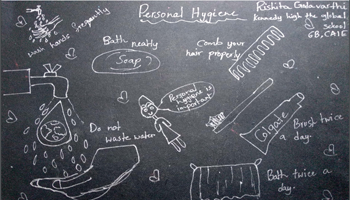 Personal Hygiene
Rishita Godavarthi
kennedy high the global
school
6B, CA15
Wash hands frequently
Bath neatly
Soap?
comb your
hair properly
Personal
hygiene is
important
Do not
waste water
Colgate
Brost twice
a day.
Bath twice a
day.